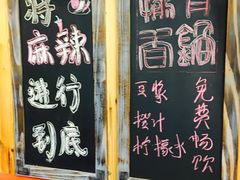 将
麻辣
进行
到底
香锅
豆浆
橙汁
柠檬水
免费畅饮